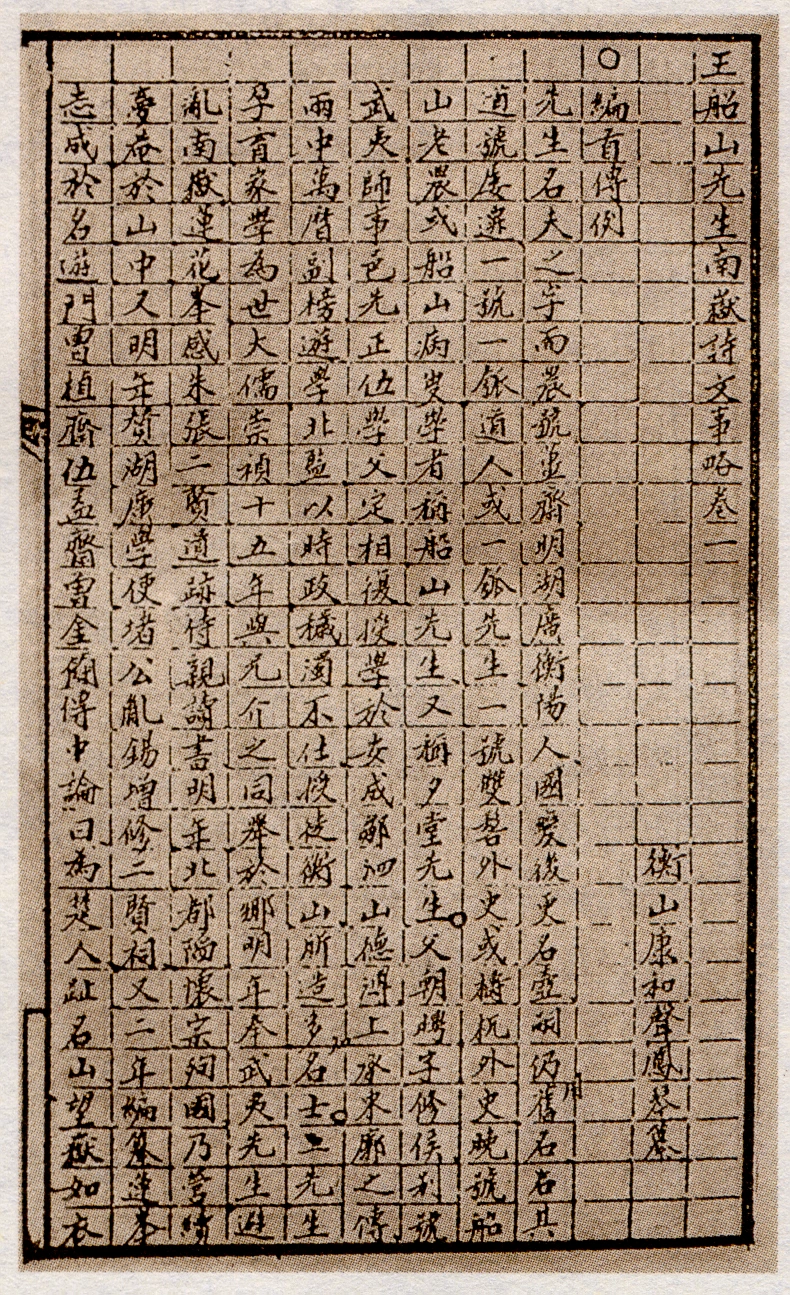 王船山先生南嶽詩文事略卷一
衡山康和聲鳳琴纂
○編首傳例
先生名夫之字而農號薑齋明湖廣衡陽人國變後更名壺嗣仍用舊名右其
道號屢遷一號一瓠道人或一瓠先生一號雙髻外史或檮杌外史晚號船
山老農或船山病叟學者稱船山先生又稱夕堂先生父朝聘字修侯別號
武夷師事邑先正伍學父定相復授學於安成鄒泗山德溥上承東廓之傳
兩中萬曆副榜遊學北監以時政穢濁不仕授徒衡山所造多知名士三先生
孕育家學為世大儒崇禎十五年與兄介之同舉於鄉明年奉武夷先生避
亂南嶽蓮花峯感朱張二賢遺跡侍親讀書明年北都陷懷宗殉國乃營續
夢菴於山中又明年質湖廣學使堵公胤錫增修二賢祠又二年編纂蓮峯
志成於名遊門曾植齋伍孟齋曹金簡得中論曰為楚人趾名山望嶽如衣